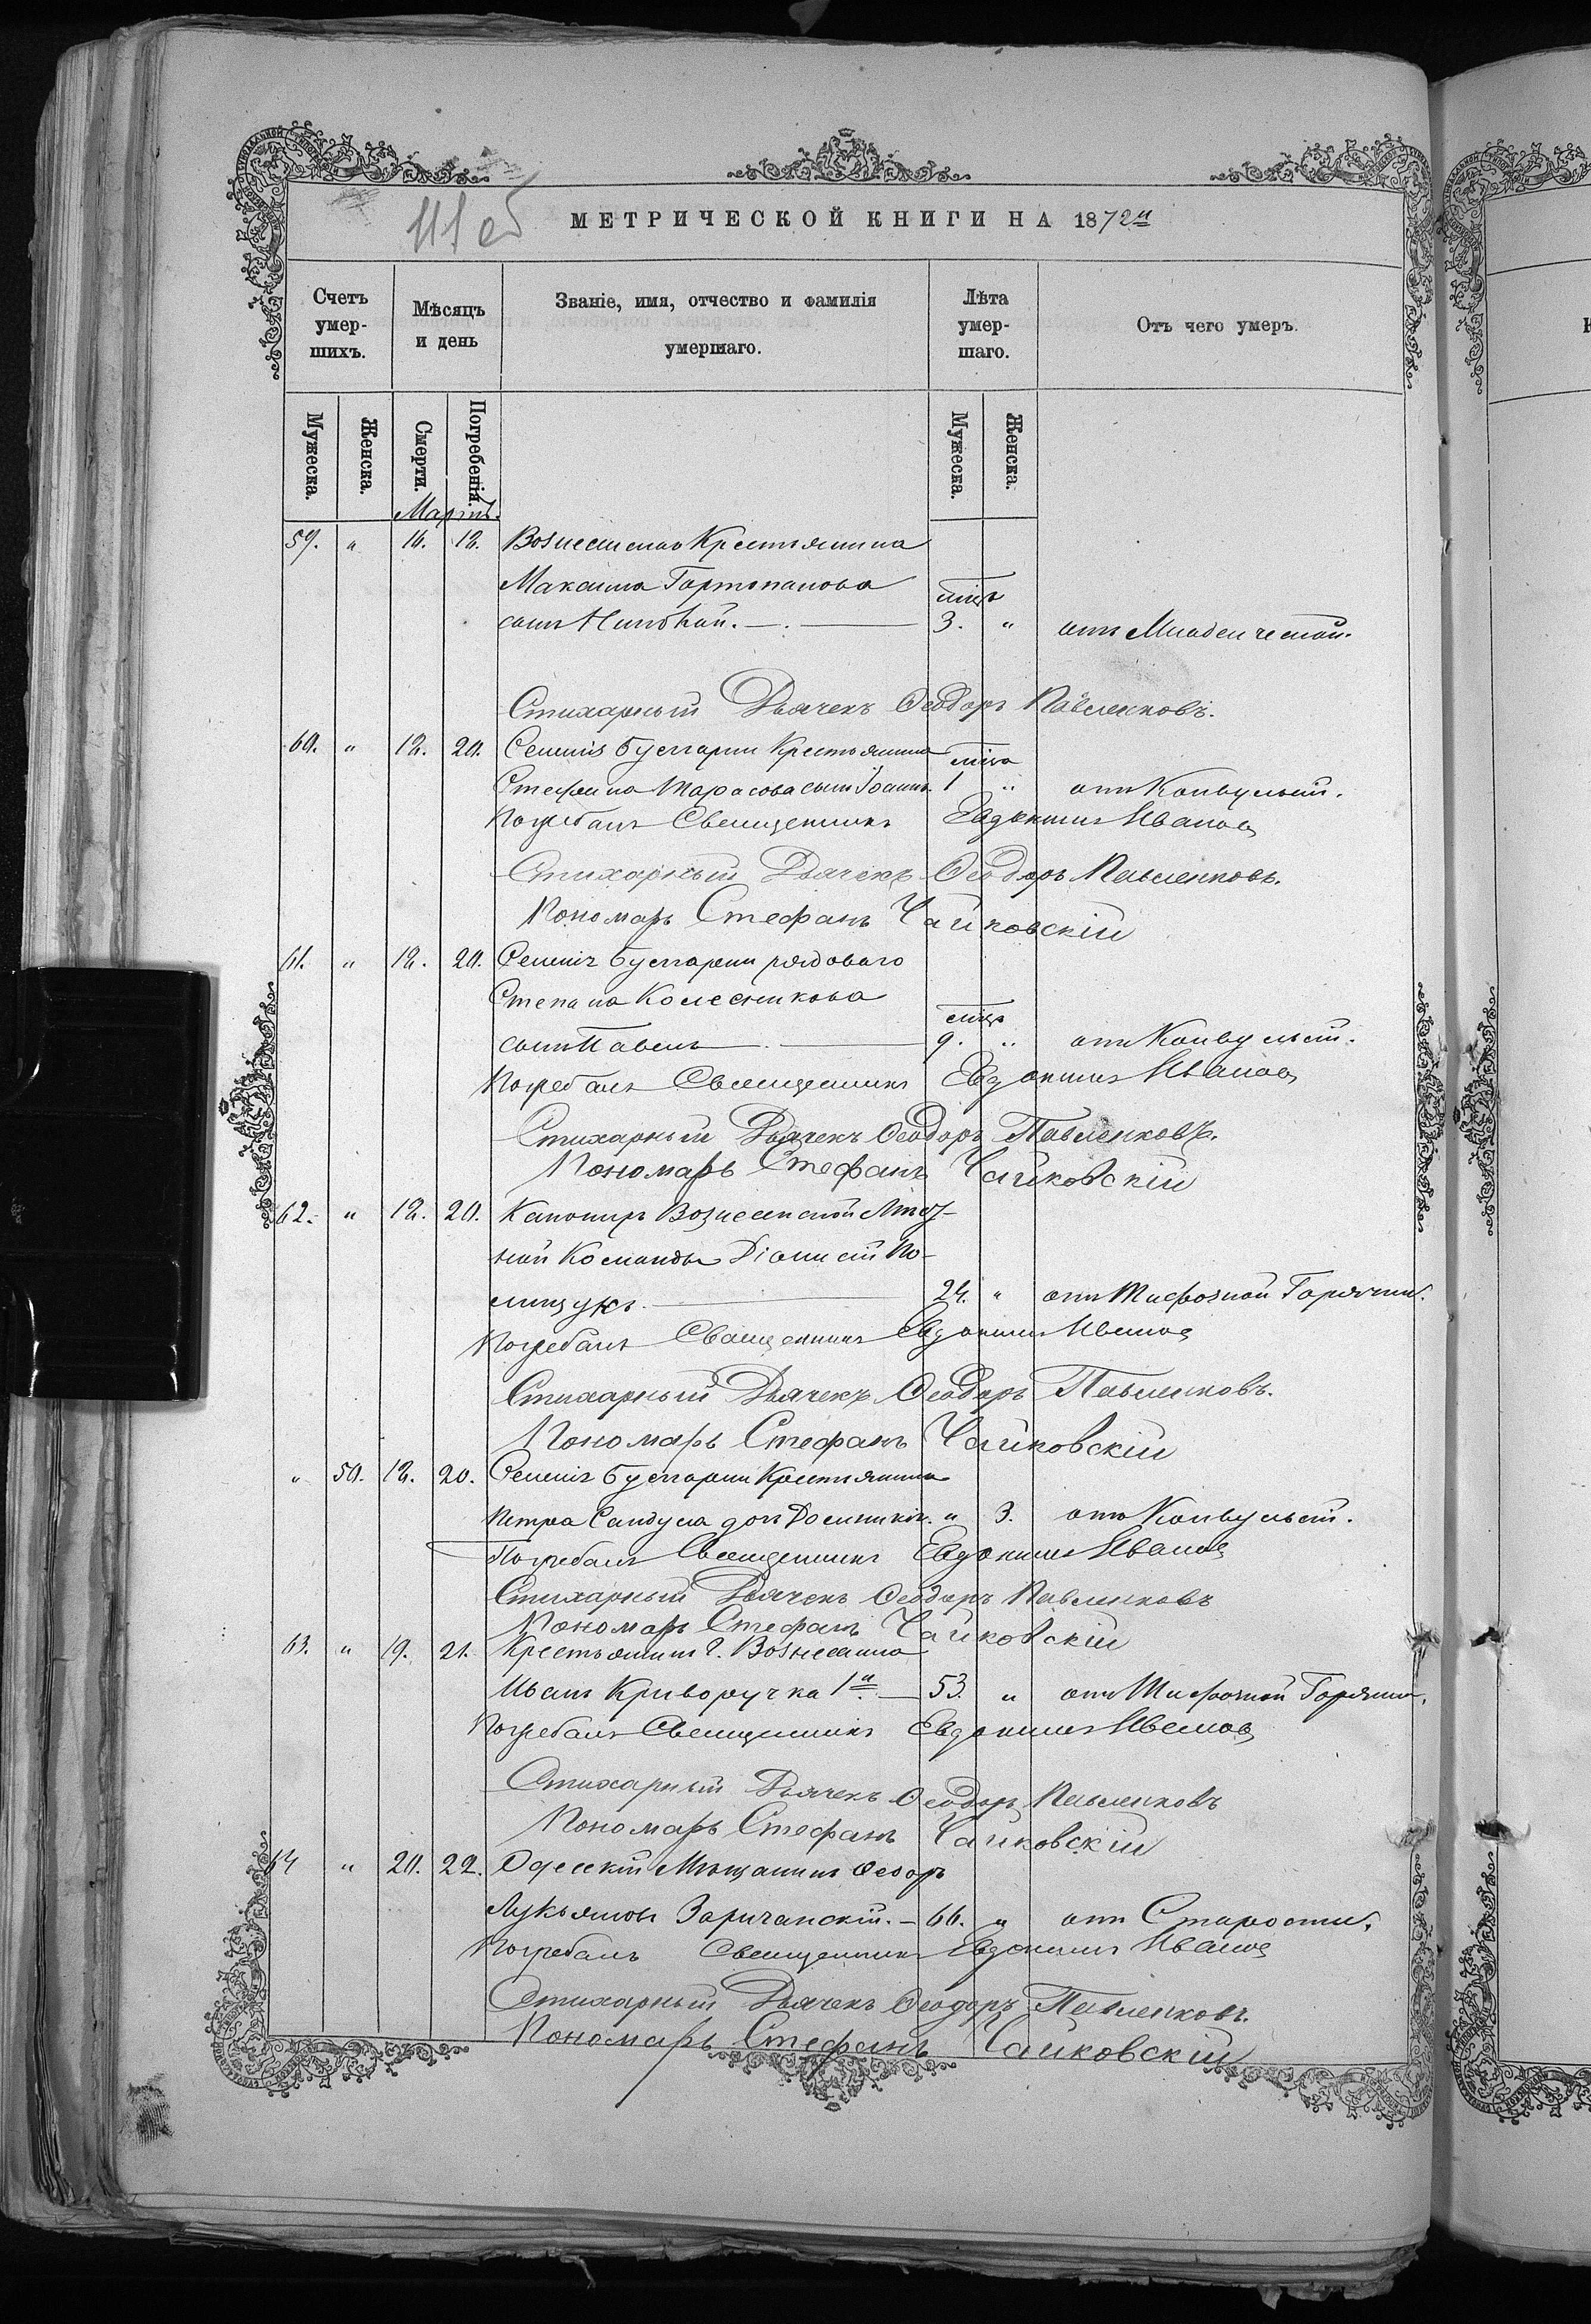 111 об
МЕТРИЧЕСКОЙ КНИГИ НА 1872й
Счетъ умер-шихъ.
Мѣсяцъ и день
Званіе, имя, отчество и фамилія умершаго.
Лѣта умер-шаго.
Отъ чего умеръ.
Мужеска.
Женска.
Смерти.
Погребенія.
Мужеска.
Женска.
Мартъ.
59. " 16. 18. Вознесенска Крестьянина
Максима
сынъ Николай. 3. " отъ Младенческой.
Стихарный Дьячекъ Ѳеодоръ Павленковъ.
60. " 18. 20. Селенія Булгарки Крестьянина
Стефана Тарасова сынъ Іоаннъ. 1 " отъ Конвульсій.
Погребалъ Священникъ Евдокимъ Ивановъ
Стихарный Дьячекъ Ѳеодоръ Павленковъ.
Пономарь Стефанъ Чайковскій
61. " 18. 20. Селенія Булгарки рядоваго
Степана Колесникова
сынъ Павелъ 9. " отъ Конвульсій.
Погребалъ Священникъ Евдокимъ Ивановъ
Стихарный Дьячекъ Ѳеодоръ Павленковъ.
Пономарь Стефанъ Чайковскій
62. " 18. 20. Канониръ Вознесенской
ной Команды Діонисій По-
лищукъ. 24. " отъ Тифозной Горячки.
Погребалъ Священникъ Евдокимъ Ивановъ
Стихарный Дьячекъ Ѳеодоръ Павленковъ.
Пономарь Стефанъ Чайковскій
" 50. 18. 20. Селенія Булгарки Крестьянина
Петра Сандула дочь Домникія. " 3. отъ Конвульсій.
Погребалъ Священникъ Евдокимъ Ивановъ
Стихарный Дьячекъ Ѳеодоръ Павленковъ
Пономарь Стефанъ Чайковскій
63. " 19. 21. Крестьянинъ г. Вознесенска
Иванъ Криворучка 1й. 53. " отъ Тифозной Горячки.
Погребалъ Священникъ Евдокимъ Ивановъ
Стихарный Дьячекъ Ѳеодоръ Павленковъ
Пономарь Стефанъ Чайковскій
64 " 20. 22. Одесскій Мѣщанинъ Ѳеодоръ
Лукьяновъ Заричанскій. 66. " отъ Старости.
Погребалъ Священникъ Евдокимъ Ивановъ
Стихарный Дьячекъ Ѳеодоръ Павленковъ.
Пономарь Стефанъ Чайковскій